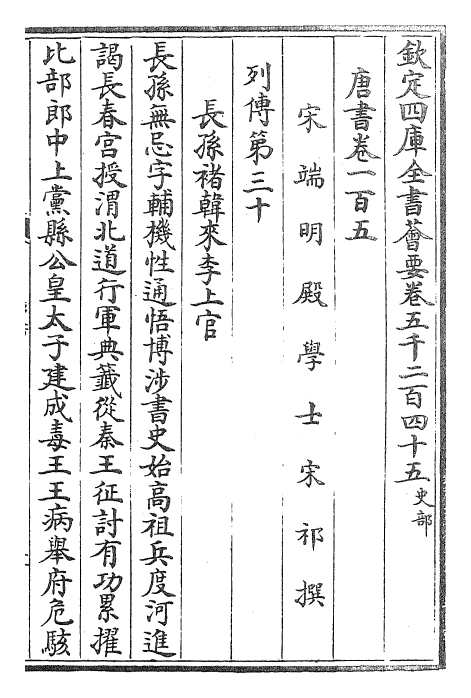 欽定四庫全書薈要卷五千二百四十五史部
唐書卷一百五
宋端明殿學士宋祁撰
列傳第三十
長孫褚韓來李上官
長孫無忌字輔機性通悟博涉書史始高祖兵度河進
謁長春宮授渭北道行軍典籤從秦王征討有功累擢
比部郎中上黨縣公皇太子建成毒王王病舉府危駭